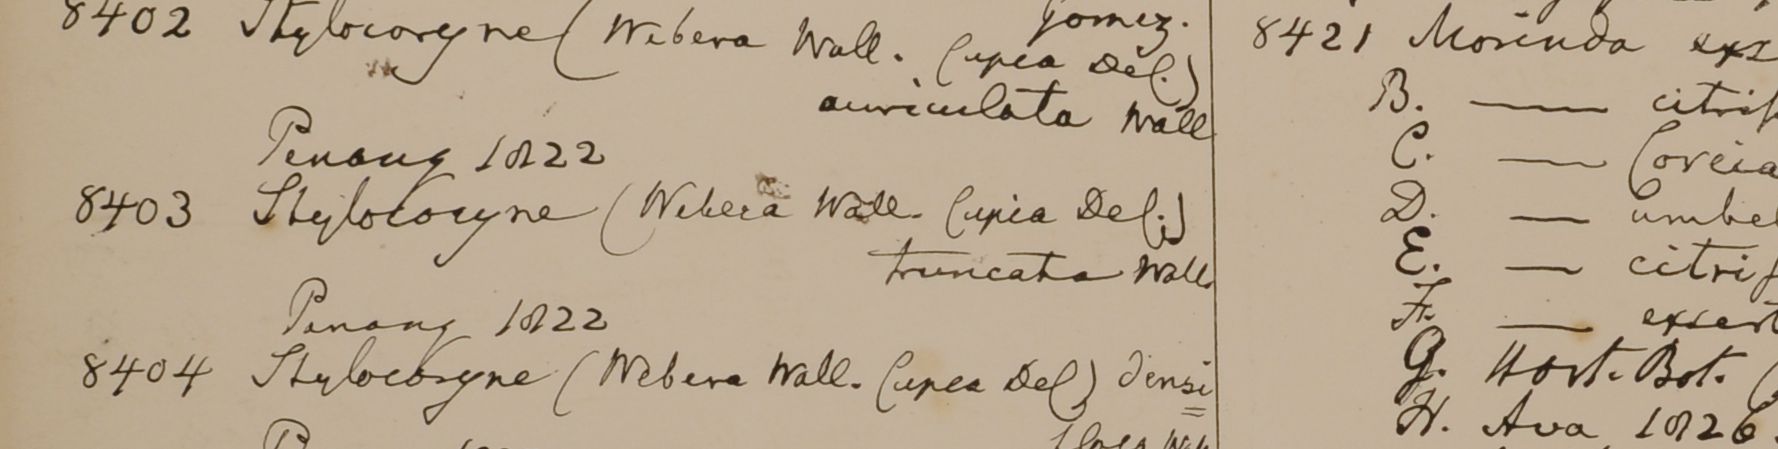 Gomez.
8402 Stylocoryne (Webera Wall. Cupia Del.)
auriculata Wall
Penang 1822
8403 Stylocoryne (Webera Wall. Cupia Del.)
truncata Wall.
Penang 1822
8404 Stylocoryne (Webera Wall. Cupea Del) densi
8421 Morinda
B. —— citrif
C. —— Coreia
D. —— umbel
E. —— citrif
F. —— exsert
G. Hort. Bot. (
H. Ava 1826.